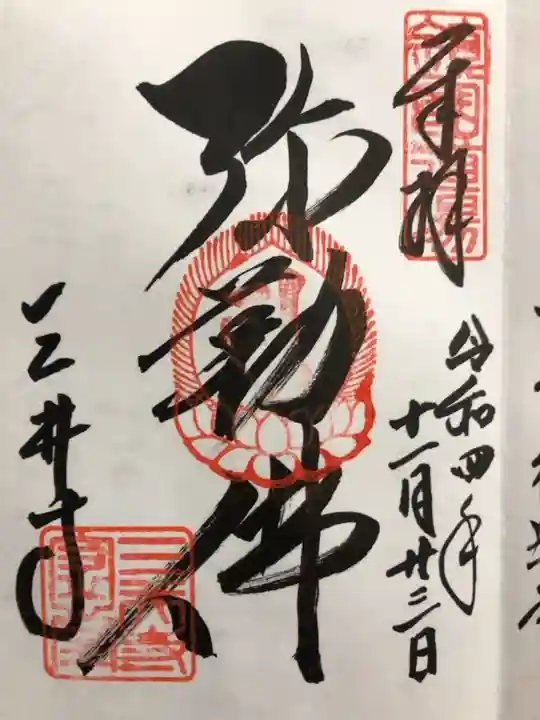 奉拝
令和四年
十一月廿三日
弥勒佛
三井寺